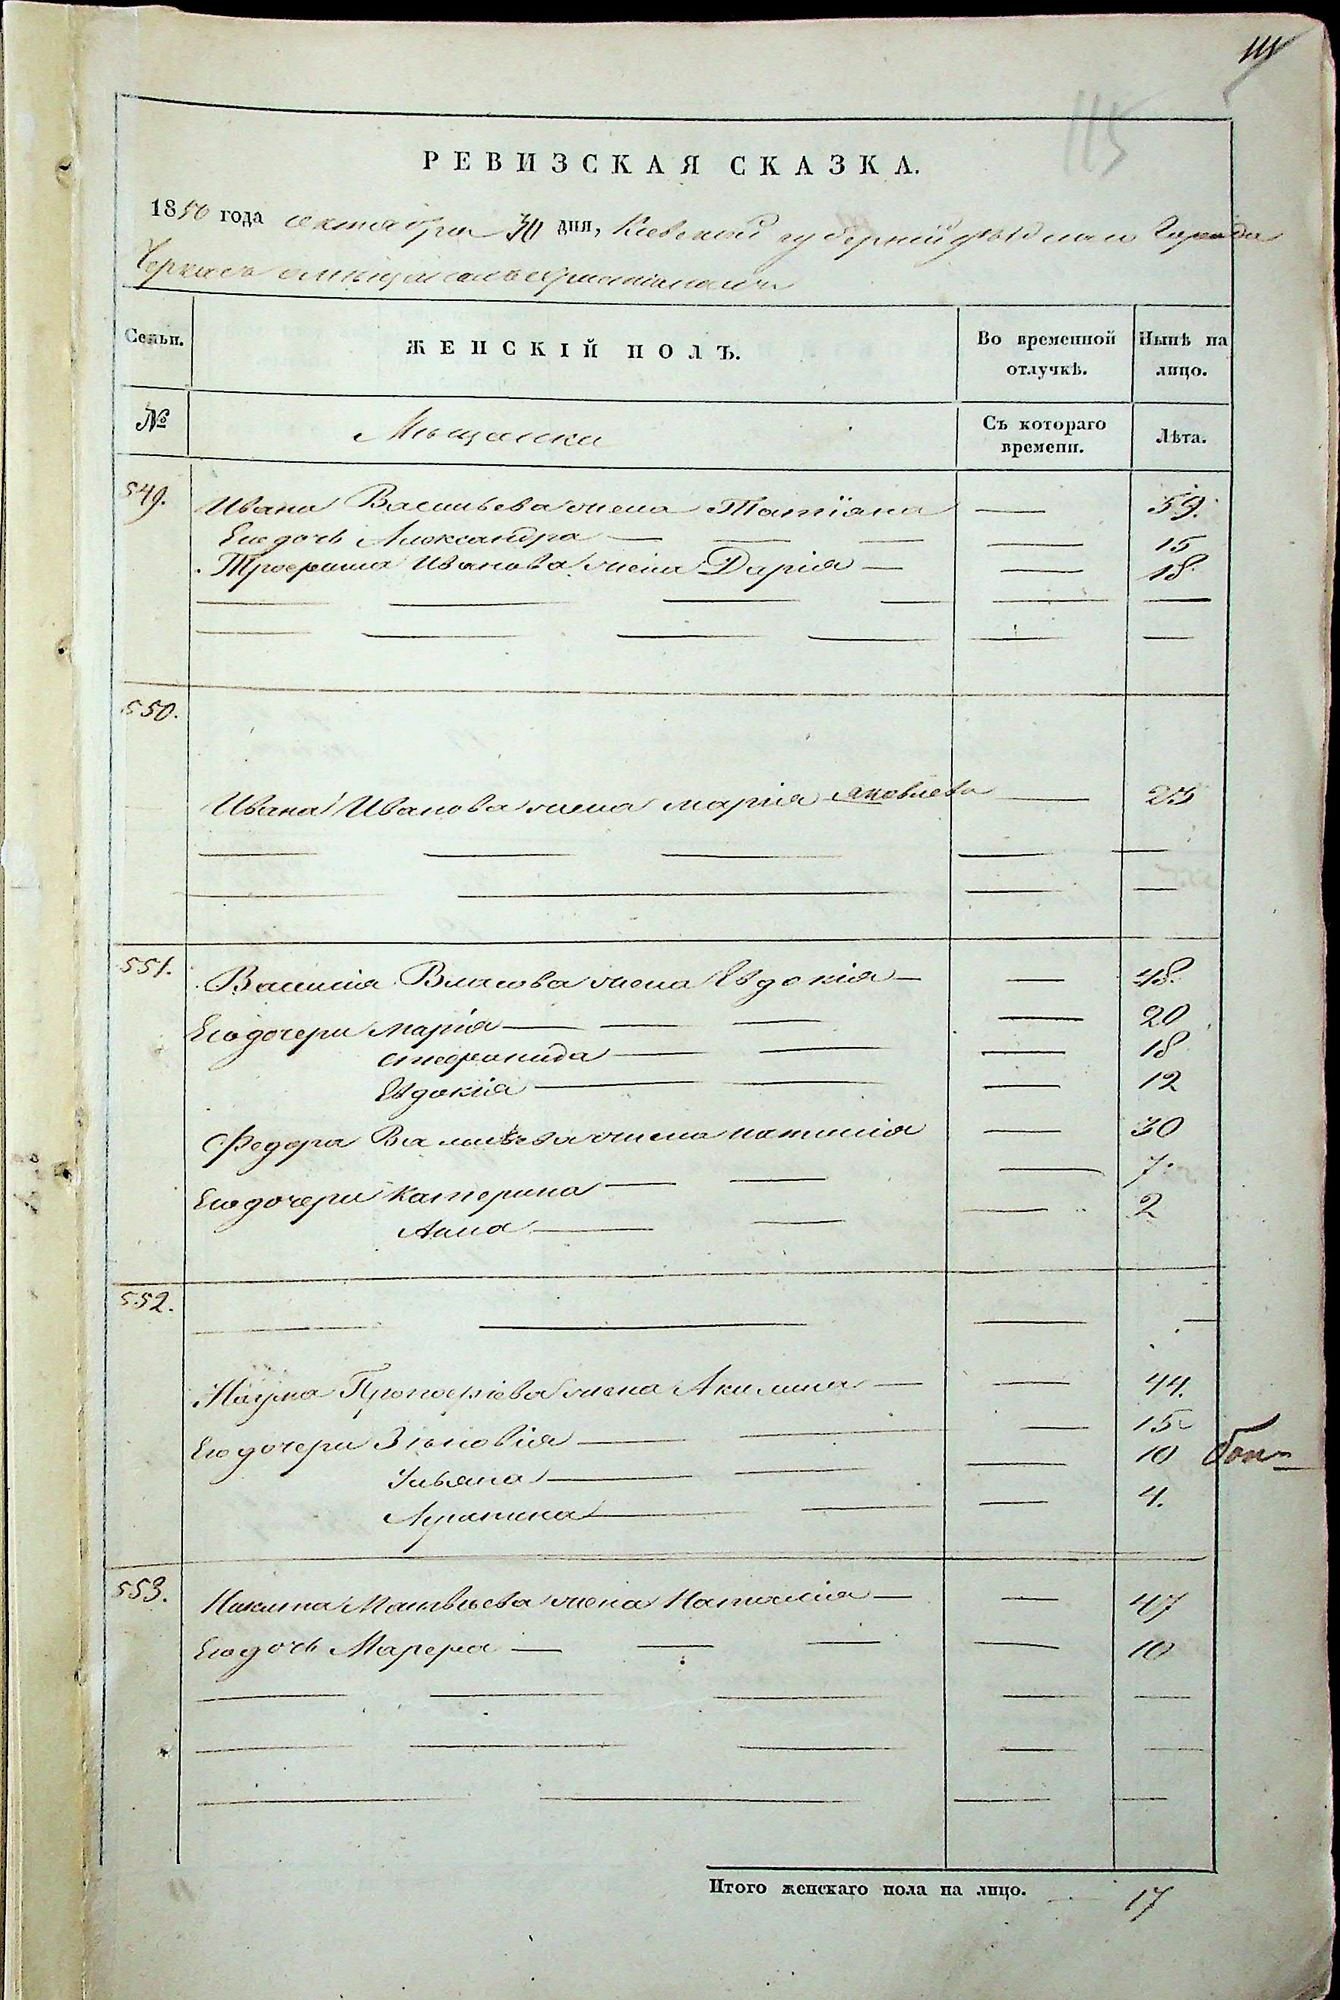 111
115
РЕВИЗСКАЯ СКАЗКА.
1850 года октября 30 дня, Киевской губерніи уезднаго Города
Черкасъ о мещанахъ христіанахъ
Семьи. ЖЕНСКІЙ ПОЛЪ. Во временной отлучкѣ. Нынѣ на лицо.
№ Мещанска Съ котораго времени. Лѣта.
549. Ивана Васильева жена Татіяна — 59.
Его дочь Александра — 15
Трофима Иванова жена Дарія — 18.
550.
Ивана Иванова жена Марія Яковлева — 25
551. Василія Власова жена Евдокія — 48.
Его дочери Марія — 20
Степонида — 18
Евдокія — 12
Федора Васильева жена Наталія — 30
Его дочери Катерина — 7
Анна — 2
552.
Наума Прокофіева жена Акилина — 44.
Его дочери Зѣновія — 15
Ульяна — 10
Лукина — 4.
553. Никита Матвѣева жена Наталія — 47
Его дочь Марфа — 10
Итого женскаго пола на лицо. 17